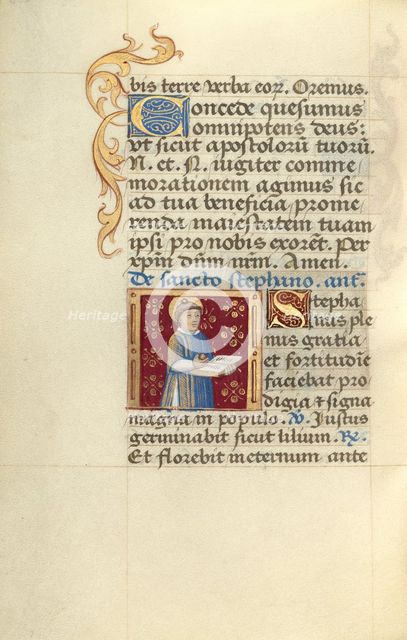 bis terre verba eoꝝ. Oremus.
Concede quesumus
omnipotens deus:
ut sicut apostolorū tuorū
N. et. N. iugiter comme
morationem agimus sic
ad tua beneficia prome
renda maiestatem tuam
ipsi pro nobis exoret. Per
xp̄m dn̄m nrm̄. Amen.
De sancto stephano. ant̄.
Stepha
nus ple
nus gratia
et fortitudīe
faciebat pro
digia ⁊ signa
magna in populo. ℣. Justus
germinabit sicut lilium. ℟.
Et florebit in eternum ante
Heritage